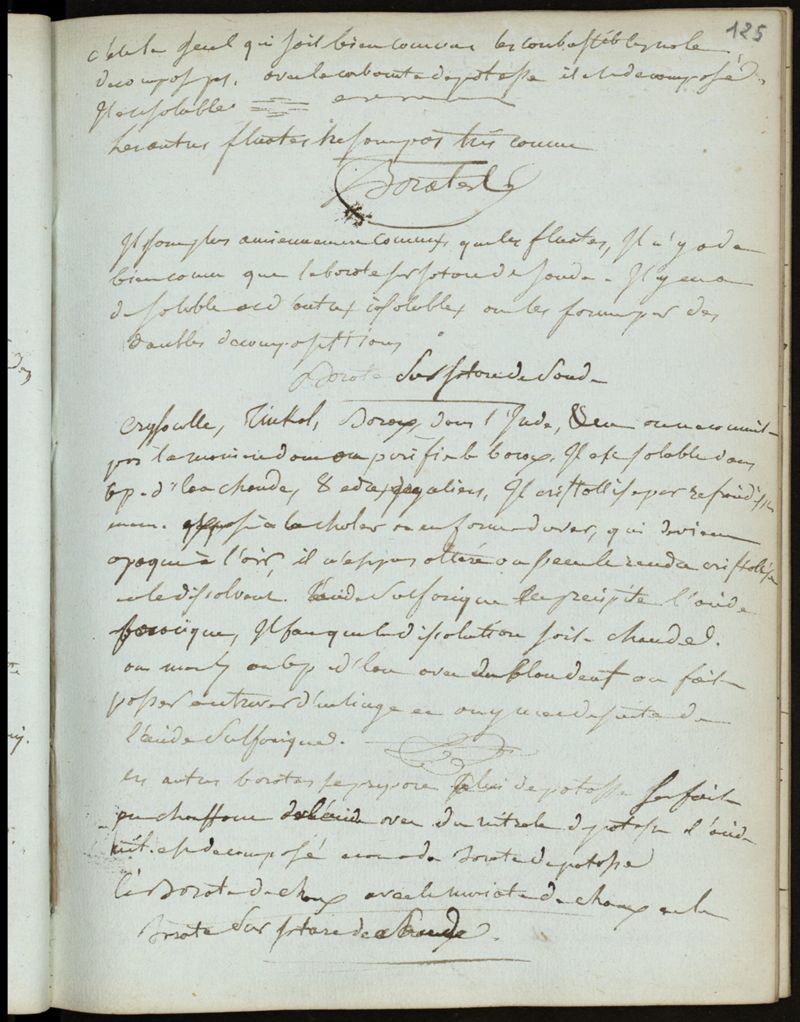 125
c'est le seul qui soit bien connu les combustibles ne le
decompose pas, avec le carbonate de potasse il est decomposé
Il est soluble
Les autres fluates ne sont pas très connu
Borates
Il sont plus anciennement connus que les fluates, Il n'y a de
bien connu que le borate sursature de soude. Il y en a
de soluble et d'autres isolubles on les forme par des
doubles decomposittions
Borate Sursature de Soude
Crysocolle, Tinkal, Borax, dans l'Inde, on ne connait
pas la maniere dont on purifie le borax. Il est soluble dans
6 p. d'eau chaude, Il cristallise par refroidisse
ment. exposé à la chaleur en forme de verre, qui devient
opaque à l'air, il n'est pas altéré on peut le rendre cristallisé
en le dissolvant. l'acide Sulforique en precipite l'acide
boracique, Il faut que la dissolution soit chaude.
on met 6 p. d'eau avec du blanc d'oeuf on fait
passer au travers d'un linge et on y met de suite de
l'acide Sulforique.
les autres borates se prepare celui de potasse se fait
en chauffant de l'acide avec du nitrate de potasse l'acide
nit. est decomposé et on a du Borate de potasse
le Borate de chaux avec le muriate de chaux et le
Borate Sursature de Soude.